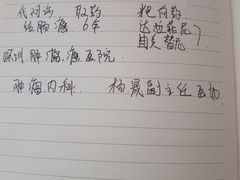 代问诊 取药 靶向药
结肠癌。6年 达拉菲尼
曲美替尼
深圳肿瘤医院
肿瘤内科 杨晟副主任医师